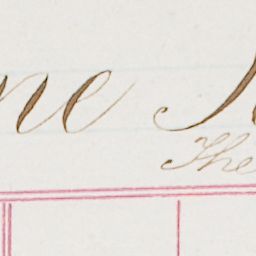 ne
The